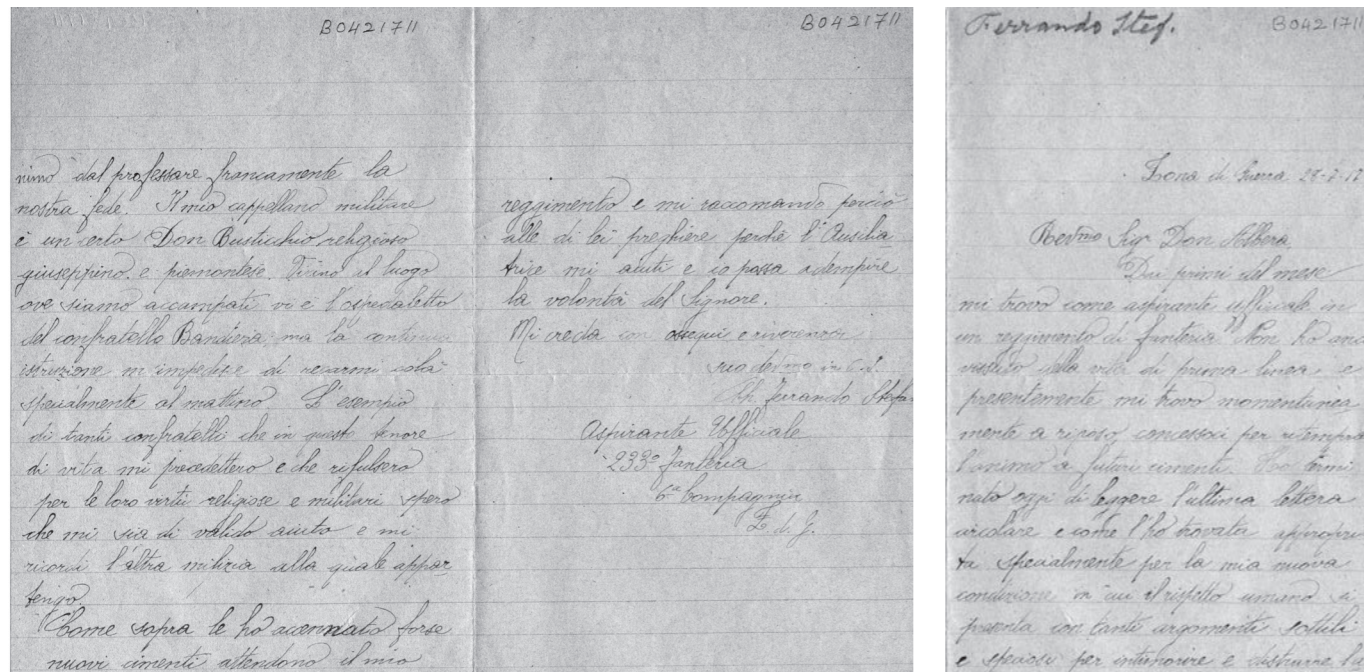 B0421711
nino dal professare francamente la
nostra fede. Il mio cappellano militare
è un certo Don Busticchio religioso
giuseppino, e piemontese. Vicino al luogo
ove siamo accampati vi è l'ospedaletto
del confratello Bandiera; ma la continua
istruzione m'impedisce di recarmi colà
specialmente al mattino. L'esempio
di tanti confratelli che in questo tenore
di vita mi precedettero e che rifulsero
per le loro virtù religiose e militari spero
che mi sia di valido aiuto e mi
ricordi l'altra milizia alla quale appar
tengo.
Come sopra le ho accennato forse
nuovi cimenti attendono il mio
B0421711
reggimento e mi raccomando perciò
alle di lei preghiere perchè l'Ausilia
trice mi aiuti e io possa adempire
la volontà del Signore.
Mi creda con ossequi e riverenza
suo dev.mo in C. J.
Ch. Ferrando Stefa
Aspirante Ufficiale
233° Fanteria
6a Compagnia
Z. di G.
Ferrando Stef.
B0421711
Zona di Guerra
Rev.mo Sig. Don Albera,
Dai primi del mese
mi trovo come aspirante ufficiale in
un reggimento di fanteria. Non ho anc
vissuto della vita di prima linea, e
presentemente mi trovo momentanea
mente a riposo, concessoci per ritempra
l'animo a futuri cimenti. Ho termi
nato oggi di leggere l'ultima lettera
circolare e come l'ho trovata appropri
ta specialmente per la mia nuova
condizione in cui il rispetto umano si
presenta con tanti argomenti sottili
e speciosi per intimorire e distrarre